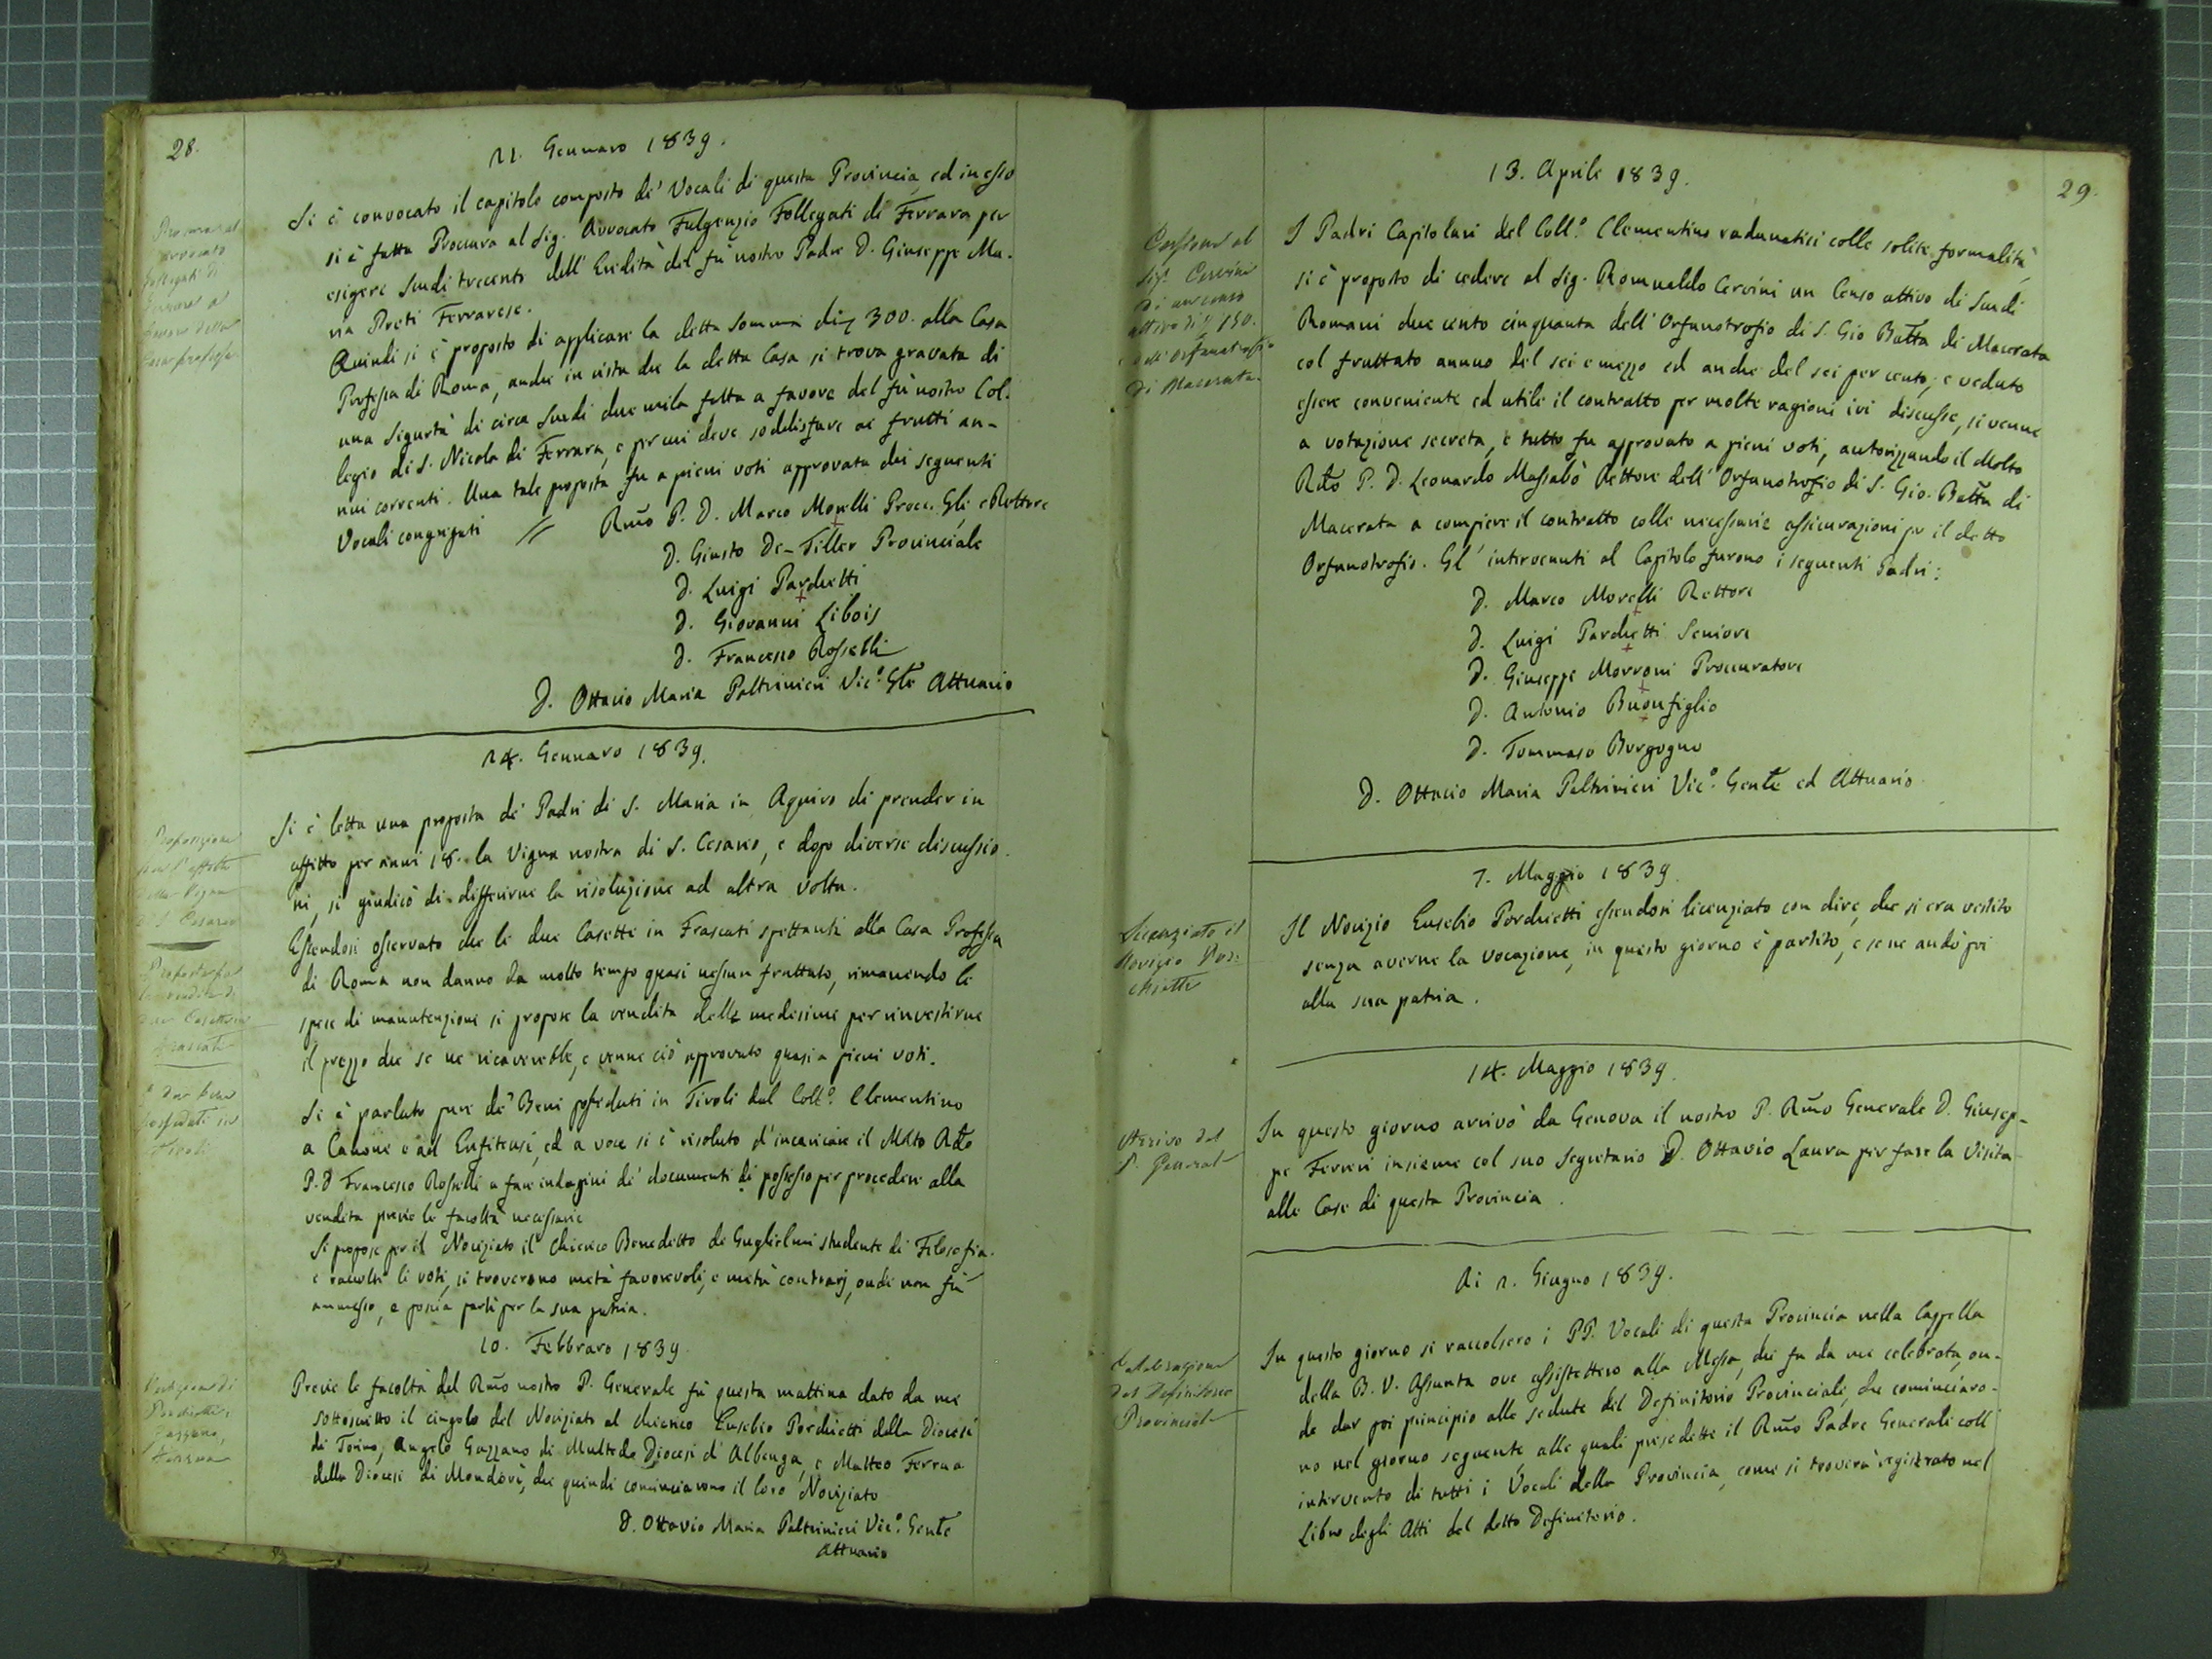 28.
21. Gennaro 1839.
Procura al
avvocato
Follegati di
Ferrara a
favore della
Casa professa
Si è convocato il capitolo composto de' Vocali di questa Provincia, ed in esso
si è fatta Procura al Sig. Avvocato Fulgenzio Follegati di Ferrara per
esigere Scudi trecento dell' Eredità del fù nostro Padre D. Giuseppe Ma-
ria Preti Ferrarese.
Quindi si è proposto di applicare la detta Somma di 300. alla Casa
Professa di Roma, anche in vista che la detta Casa si trova gravata di
una Sigurtà di circa Scudi due mila fatta a favore del fù nostro Col-
legio di S. Nicola di Ferrara, e per cui deve soddisfare ai frutti an-
nui correnti. Una tale proposta fu a pieni voti approvata dai seguenti
Vocali congregati // Rmo P. D. Marco Morelli Procc. Gle e Rettore
D. Giusto De-Filler Provinciale
D. Luigi Parchetti
D. Giovanni Libois
D. Francesco Rosselli
D. Ottavio Maria Paltrinieri Vic.o Gle Attuario
24. Gennaro 1839.
Proposizione
per l'affitto
della Vigna
di S. Cesareo
Si è letta una proposta de' Padri di S. Maria in Aquiro di prender in
affitto per anni 18. la Vigna nostra di S. Cesareo, e dopo diverse discussio-
ni, si giudicò di differirne la risoluzione ad altra volta.
Proposta per
la vendita di
due Casette in
Frascati
Essendosi osservato che le due Casette in Frascati spettanti alla Casa Professa
di Roma non danno da molto tempo quasi nessun fruttato, rimanendo le
spese di manutenzione si propose la vendita delle medesime per rinvestirne
il prezzo che se ne ricaverebbe, e venne ciò approvato quasi a pieni voti.
e dei beni
posseduti in
Tivoli
Si è parlato pure de' Beni posseduti in Tivoli dal Coll.o Clementino
a Canone e ad Enfiteusi, ed a voce si è risoluto d'incaricare il Mlto Rdo
P. D Francesco Rosselli a fare indagini de' documenti di possesso per procedere alla
vendita previe le facoltà necessarie
Si propose per il Noviziato il Chierico Benedetto de Guglielmi studente di Filosofia.
e raccolti li voti, si trovarono metà favorevoli, e metà contrarj, onde non fù
ammesso, e poscia partì per la sua patria.
10. Febbraro 1839
Vestizione di
Porchietti,
Gazzano,
Ferrua
Previe le facoltà del Rmo nostro P. Generale fù questa mattina dato da me
sottoscritto il cingolo del Noviziato al chierico Eusebio Porchietti della Diocesi
di Torino, Angelo Gazzano di Multedo Diocesi d'Albenga, e Matteo Ferrua
della Diocesi di Mondovì, che quindi cominciarono il loro Noviziato
D. Ottavio Maria Paltrinieri Vic.o Gente
Attuario
29.
13. Aprile 1839.
Cessione al
Sig. Cervini
di un censo
attivo di 150.
dell' Orfanotrofio
di Macerata.
I Padri Capitolari del Coll.o Clementino radunatisi colle solite formalità,
si è proposto di cedere al Sig. Romualdo Cervini un Censo attivo di Scudi
Romani due cento cinquanta dell' Orfanotrofio di S. Gio Batta di Macerata
col fruttato annuo del sei e mezzo ed anche del sei per cento, e veduto
essere conveniente ed utile il contratto per molte ragioni ivi discusse, si venne
a votazione secreta, e tutto fu approvato a pieni voti, autorizzando il Molto
Rdo P. D. Leonardo Massabò Rettore dell' Orfanotrofio di S. Gio. Batta di
Macerata a compiere il contratto colle necessarie assicurazioni per il detto
Orfanotrofio. Gl' intervenuti al Capitolo furono i seguenti Padri:
D. Marco Morelli Rettore
D. Luigi Parchetti Seniore
D. Giuseppe Morroni Procuratore
D. Antonio Buonfiglio
D. Tommaso Borgogno
D. Ottavio Maria Paltrinieri Vic.o Gente ed Attuario
7. Maggio 1839.
Licenziato il
Novizio Por-
chietti
Il Novizio Eusebio Porchietti essendosi licenziato con dire, che si era vestito
senza averne la vocazione, in questo giorno è partito, e se ne andò poi
alla sua patria.
14. Maggio 1839.
Arrivo del
P. Generale
In questo giorno arrivò da Genova il nostro P. Rmo Generale D. Giusep-
pe Ferreri insieme col suo Segretario D. Ottavio Laura per fare la Visita
alle Case di questa Provincia.
Ai 2. Giugno 1839.
Celebrazione
del Definitorio
Provinciale
In questo giorno si raccolsero i PP. Vocali di questa Provincia nella Cappella
della B. V. Assunta ove assistettero alla Messa, che fu da me celebrata, on-
de dar poi principio alle sedute del Definitorio Provinciale, che cominciaro-
no nel giorno seguente alle quali presedette il Rmo Padre Generale coll'
intervento di tutti i Vocali della Provincia, come si troverà registrato nel
Libro degli Atti del detto Definitorio.